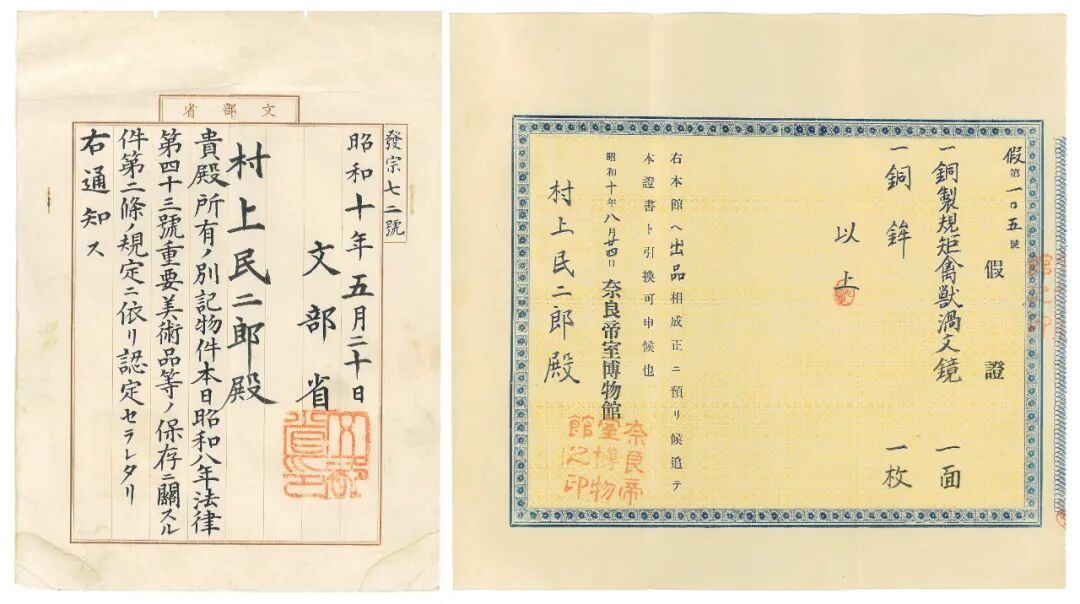 文部省
發宗七二號
昭和十年五月二十日
文部省
文部省印
村上民二郎殿
貴殿所有ノ別記物件本日昭和八年法律
第四十三號重要美術品等ノ保存ニ關スル
件第二條ノ規定ニ依リ認定セラレタリ
右通知ス
假第一〇五號
假證
一銅製規矩禽獸渦文鏡 一面
一銅鉾 一枚
以上
右本館ヘ出品相成正ニ預リ候追テ
本證書ト引換可申候也
昭和十年八月廿四日 奈良帝室博物館
奈良帝室博物館之印
村上民二郎殿